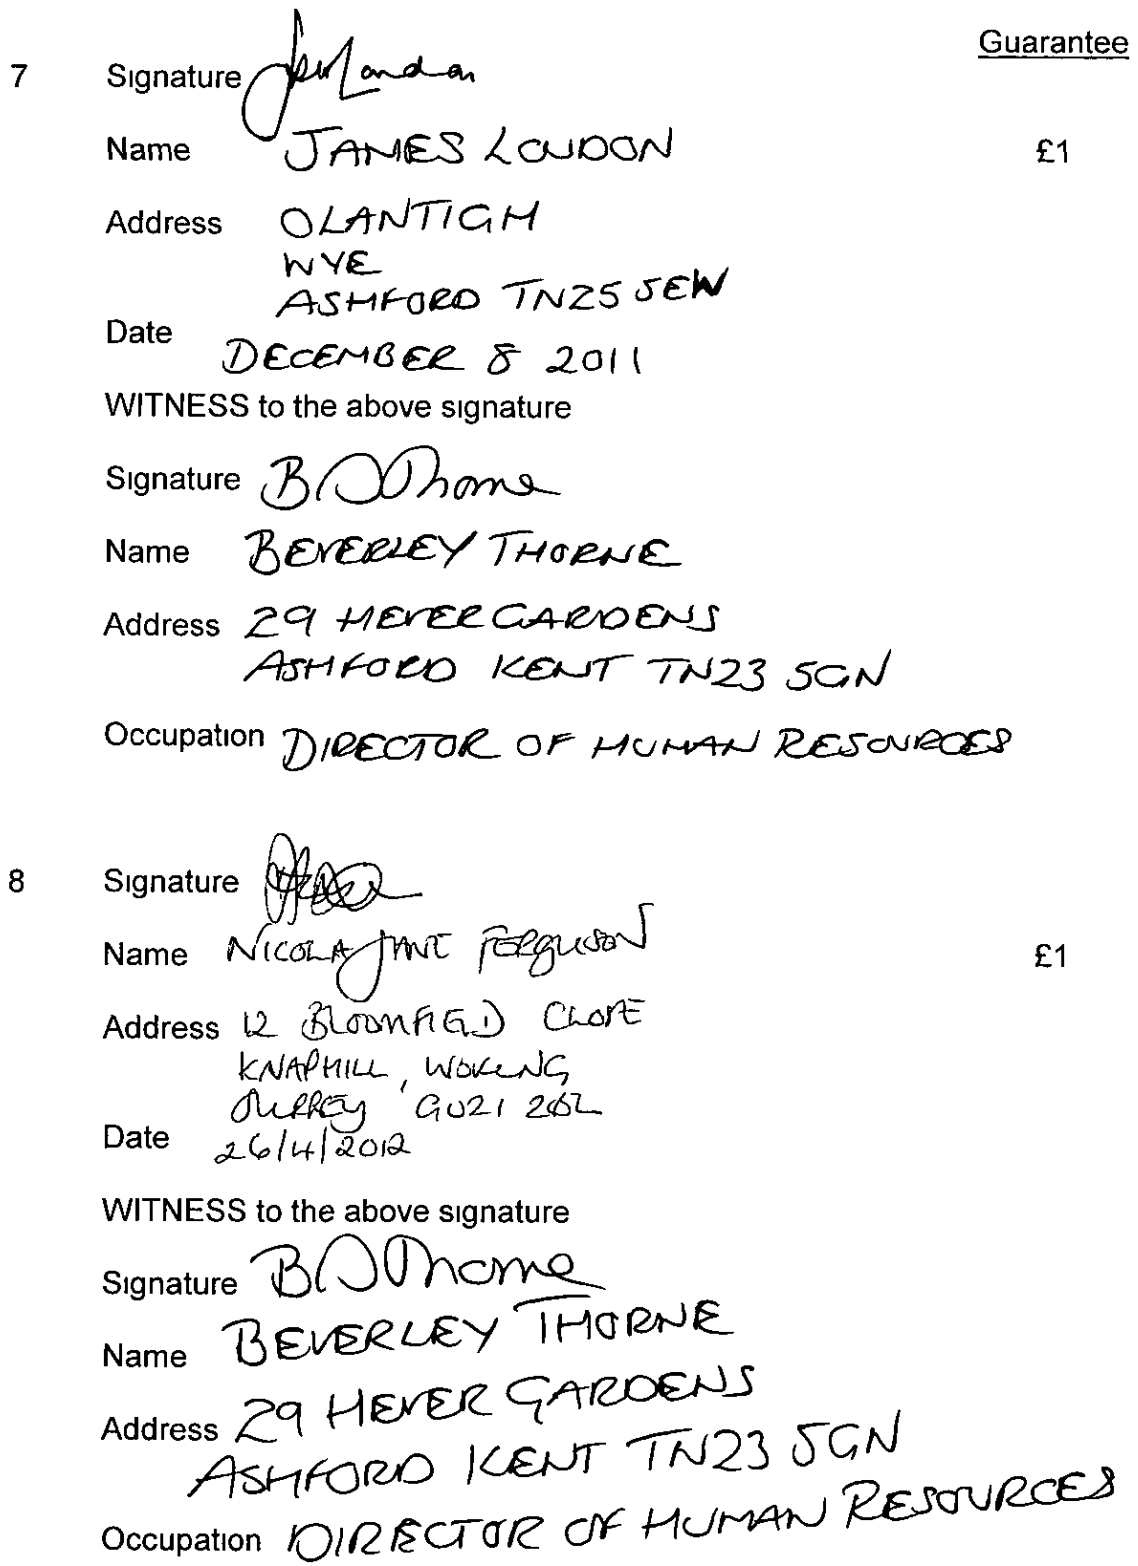 Guarantee
7 Signature
Name JAMES LOUDON £1
Address OLANTIGH
WYE
ASHFORD TN25 5EW
Date
DECEMBER 8 2011
WITNESS to the above signature
Signature B Thorne
Name BEVERLEY THORNE
Address 29 HEVER GARDENS
ASHFORD KENT TN23 5GN
Occupation DIRECTOR OF HUMAN RESOURCES
8 Signature
Name NICOLA JANE FERGUSON £1
Address 12 BLOOMFIELD CLOSE
KNAPHILL, WOKING
SURREY GU21
Date 26/4/2012
WITNESS to the above signature
Signature B Thorne
Name BEVERLEY THORNE
Address 29 HEVER GARDENS
ASHFORD KENT TN23 5GN
Occupation DIRECTOR OF HUMAN RESOURCES